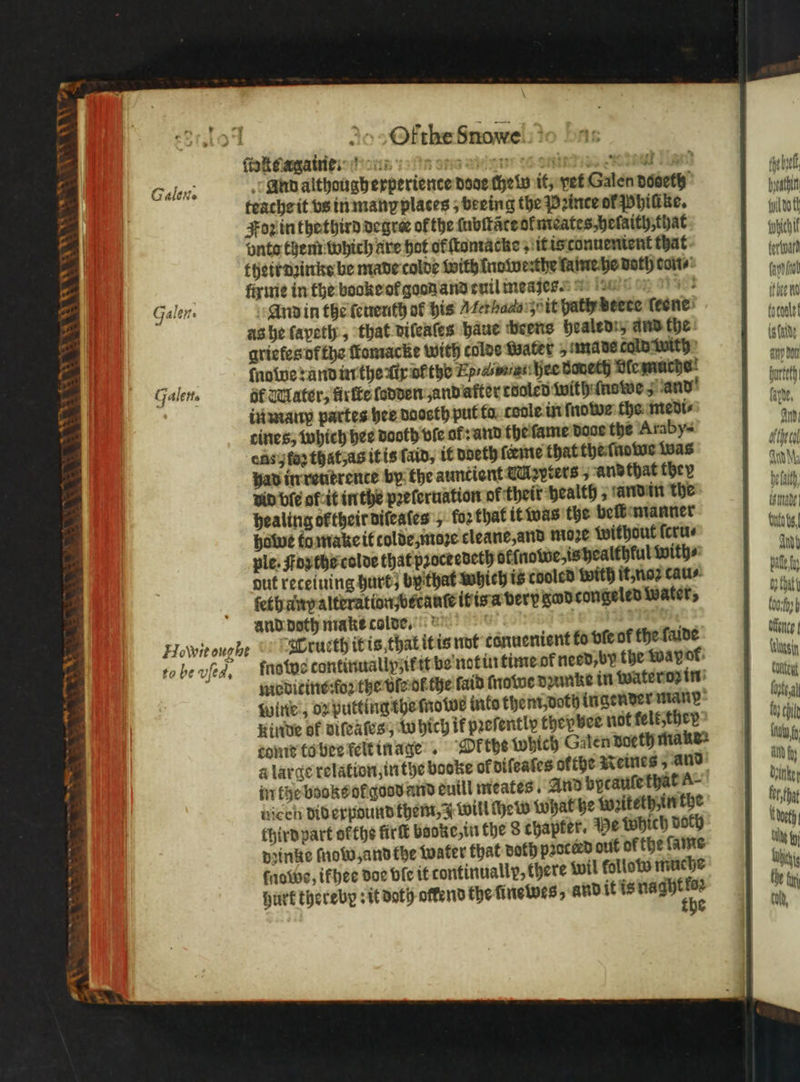 Of the Snowe
soste againe.
And although experience dooe shew it, yet Galen dooeth
Galen.
teache it vs in many places, beeing the Prince of Phisike.
For in the third degrée of the substãce of meates, he saith, that
vnto them which are hot of stomacke, it is conuenient that
their drinke be made colde with snowe: the same he doth con-
firme in the booke of good and euil meates.
Galen.
And in the seuenth of his Methado, it hath beece seene
as he sayeth, that diseases haue beene healed, and the
griefes of the stomacke with colde water, made cold with
snowe: and in the sir of the Epidimias hee dooeth vse muche
Galen.
of Water, firste sodden, and after cooled with snowe, and
in many partes hee dooeth put to coole in snowe the medi-
cines, which hee dooth vse of: and the same dooe the Araby-
ens, for that, as it is said, it doeth séeme that the snowe was
had in reuerence by the auncient Wryters, and that they
did vse of it in the preseruation of their health, and in the
healing of their diseases, for that it was the best manner
howe to make it colde, more cleane, and more without scru-
ple. For the colde that proceedeth of snowe, is healthful with-
out receiuing hurt, by that which is cooled with it, nor cau-
seth any alteration, because it is a very good congeled water,
and doth make colde.
How it ought
to be vsed.
Trueth it is, that it is not conuenient to vse of the saide
snowe continually, if it be not in time of need, by the way of
medicine: for the vse of the said snowe drunke in water or in
wine, or putting the snowe into them, doth ingender many
kinde of diseases, which if presently they bee not felt, they
come to bee felt in age. Of the which Galen doeth make
a large relation, in the booke of diseases of the Reines, and
in the booke of good and euill meates. And bycause that A-
uicen did expound them, I will shew what he writeth, in the
third part of the first booke, in the 8 chapter. He which doth
drinke snow, and the water that doth proceed out of the same
snowe, if hee doe vse it continually, there wil follow muche
hurt thereby: it doth offend the sinewes, and it is naght for
the